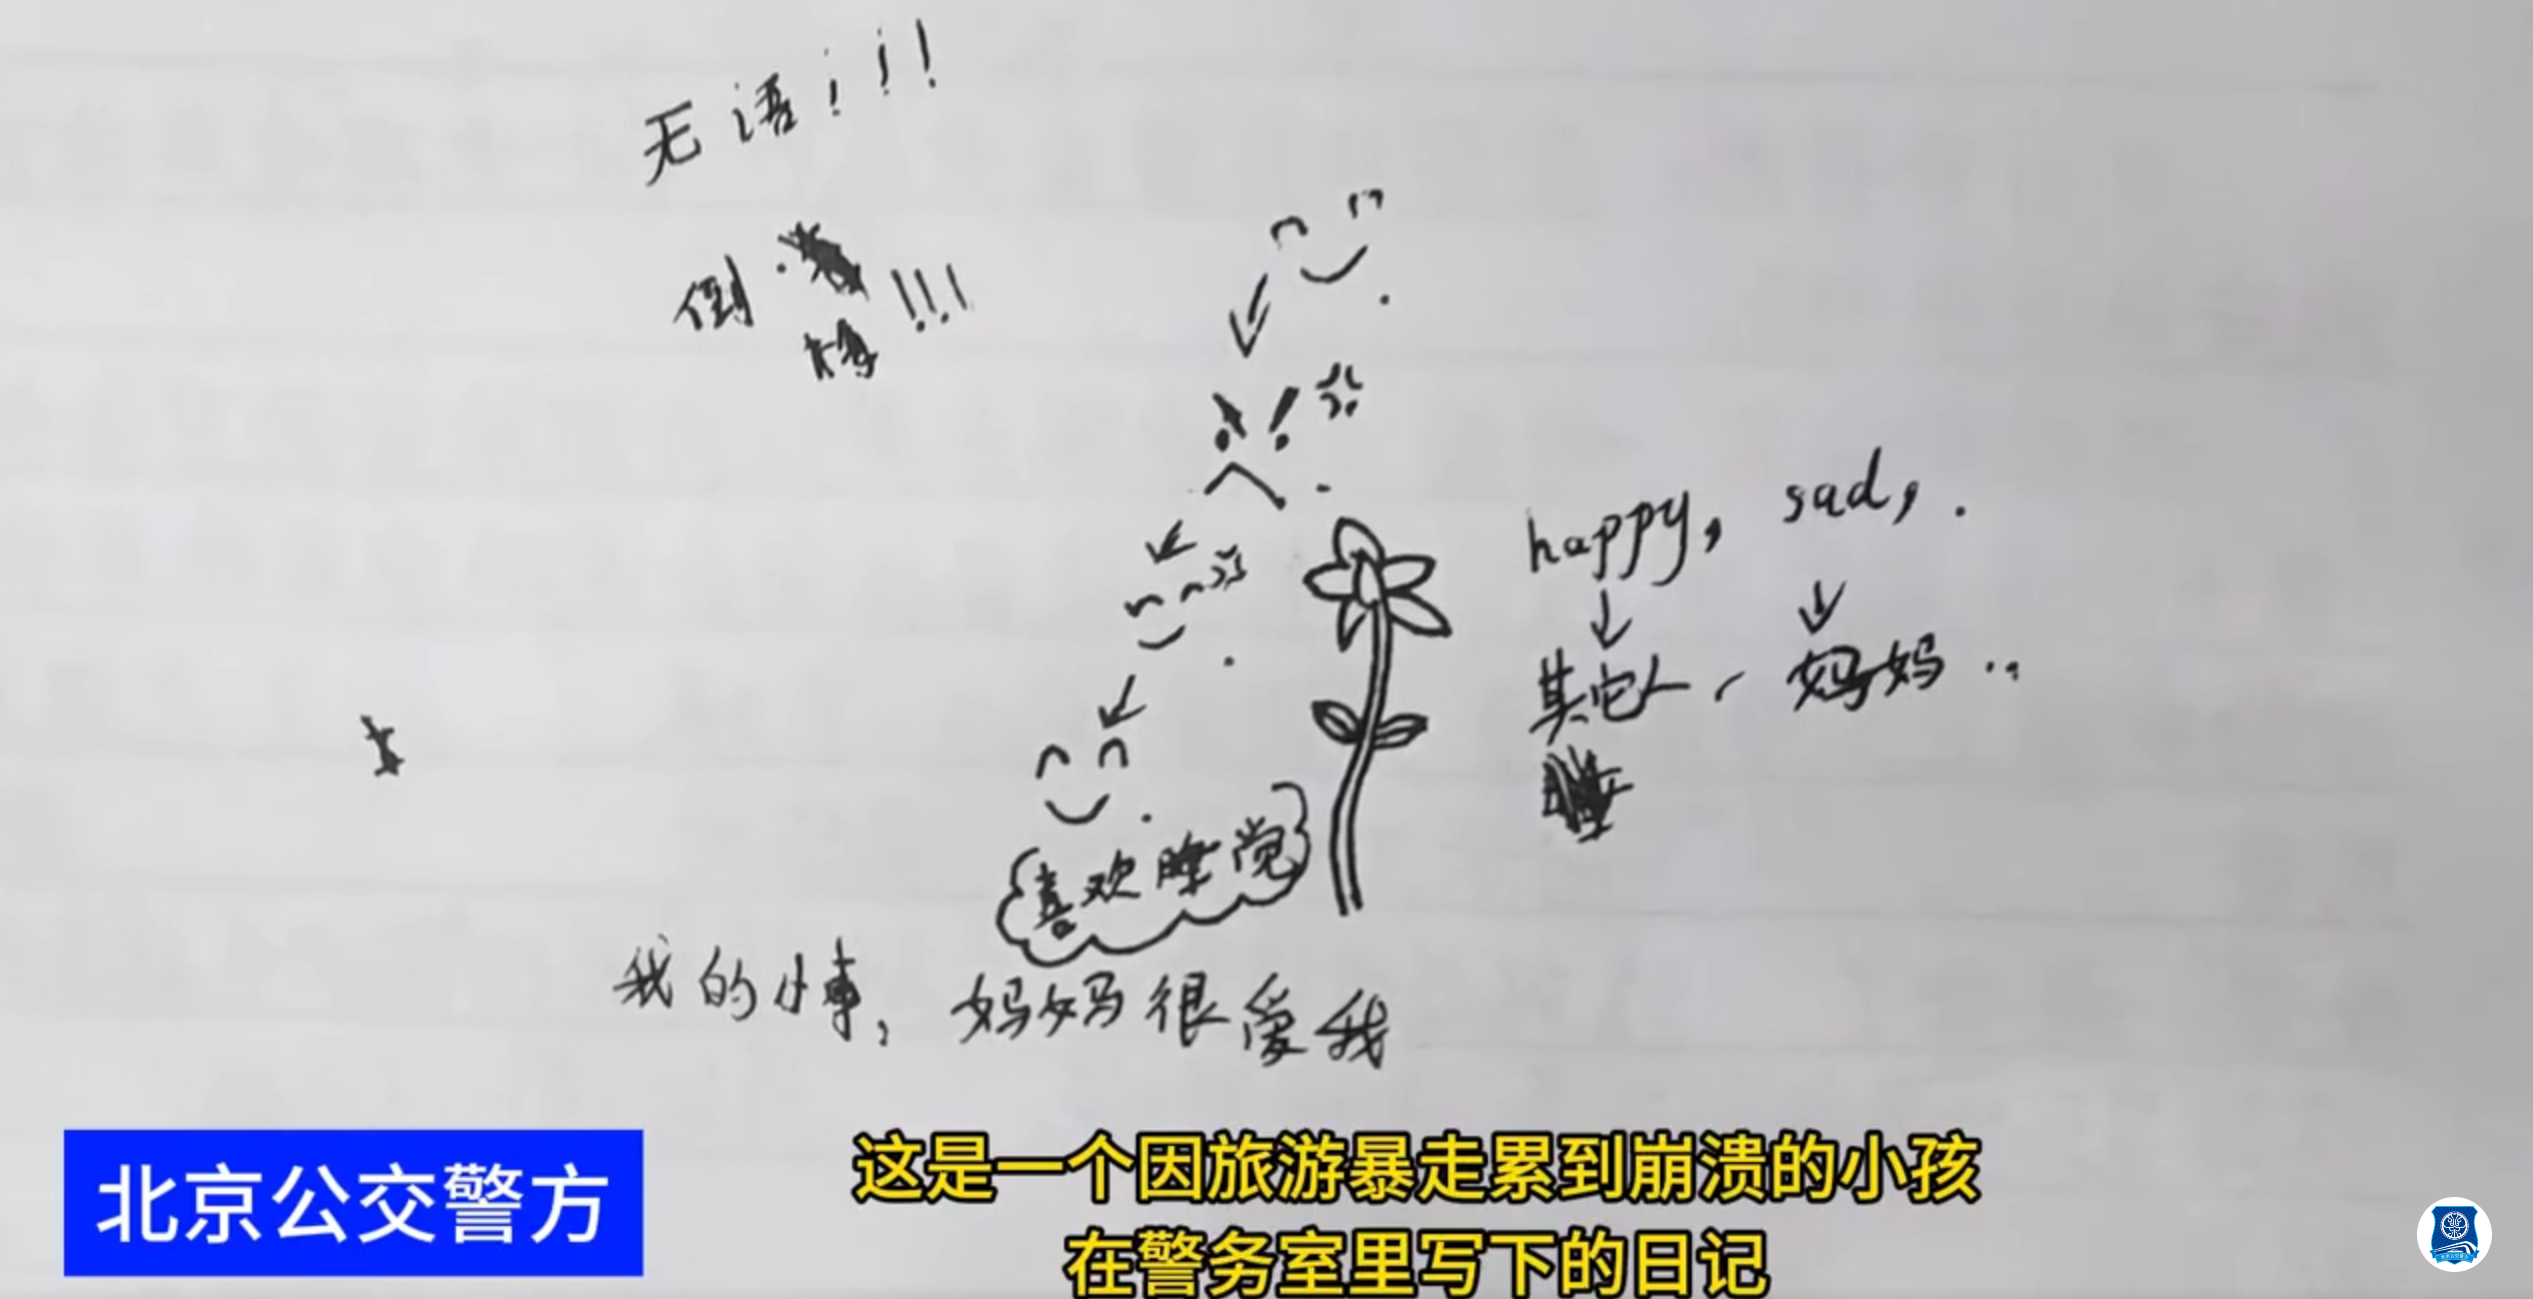 无语!!!!
倒
霉!!!
happy, sad,.
其它人、妈妈..
喜欢睡觉
我的小事,妈妈很爱我
北京公交警方
这是一个因旅游暴走累到崩溃的小孩
在警务室里写下的日记